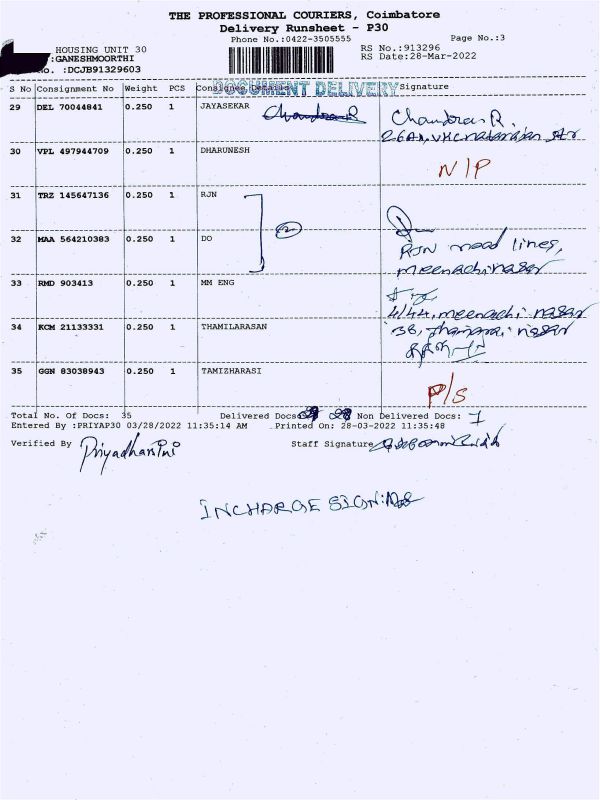 THE PROFESSIONAL COURIERS, Coimbatore
Delivery Runsheet - P30
Phone No.:0422-3505555
Page No.:3
HOUSING UNIT 30
RS No.:913296
:GANESHMOORTHI
RS Date:28-Mar-2022
No. :DCJB91329603
DOCUMENT DELIVERY
S No Consignment No Weight PCS Consignee Details Signature
29 DEL 70044841 0.250 1 JAYASEKAR Chandran R Chandran R.
26A1, VKC natarajan str
30 VPL 497944709 0.250 1 DHARUNESH N/P
31 TRZ 145647136 0.250 1 RJN
②
32 MAA 564210383 0.250 1 DO RJN road lines,
meenachi nagar
33 RMD 903413 0.250 1 MM ENG
4/44, meenachi nagar
34 KCM 21133331 0.250 1 THAMILARASAN 3B, nagar
35 GGN 83038943 0.250 1 TAMIZHARASI P/S
Total No. Of Docs: 35 Delivered Docs: 28 Non Delivered Docs: 7
Entered By :PRIYAP30 03/28/2022 11:35:14 AM Printed On: 28-03-2022 11:35:48
Verified By Priyadharsini Staff Signature
INCHARGE SIGN: